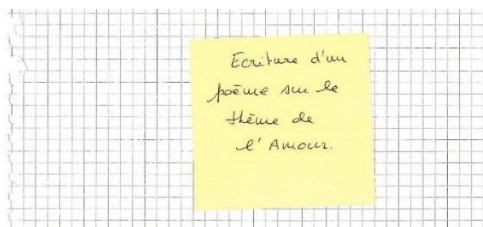 Ecriture d'un
poème sur le
thème de
l'Amour.